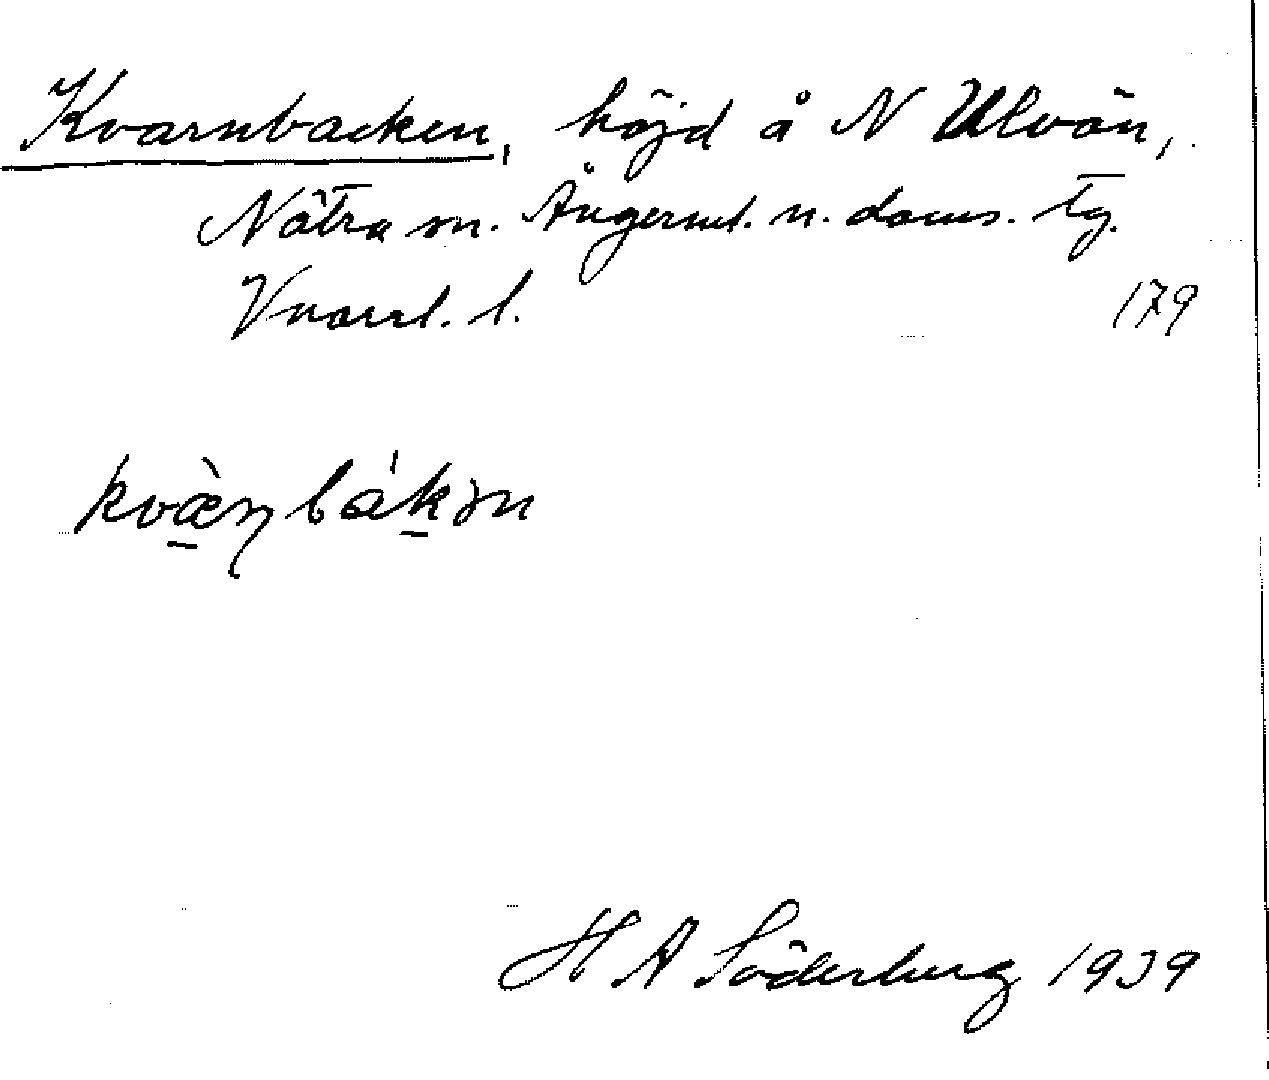 Kvarnbacken, höjd å N Ulvön,
Nätra sn. Ångerml. n. doms. tg.
Vnorrl. l. 179
kvæ̀ɳbákən
H A Söderberg 1939